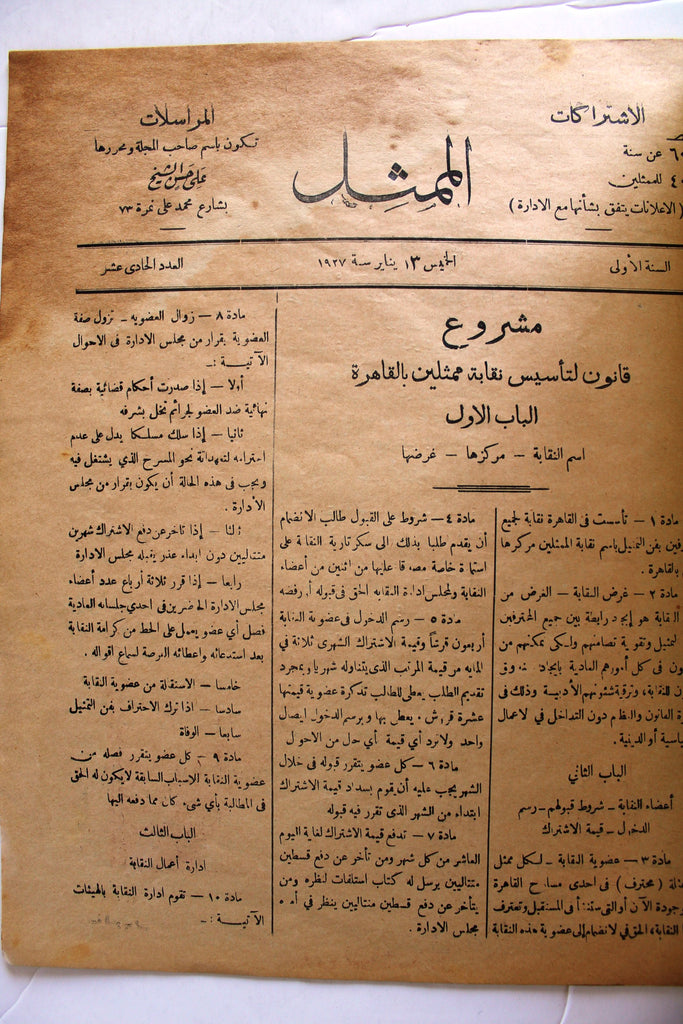 الاشتراكات
٦٠ عن سنة
٤٠ للممثلين
(الاعلانات يتفق بشأنها مع الادارة)
الممثل
المراسلات
تكون باسم صاحب المجلة ومحررها
على حسن الشيخ
بشارع محمد على نمرة ٧٣
السنة الأولى
الخميس ١٣ يناير سنة ١٩٢٧
العدد الحادى عشر
مشروع
قانون لتأسيس نقابة ممثلين بالقاهرة
الباب الاول
اسم النقابة — مركزها — غرضها
مادة ١ — تأسست فى القاهرة نقابة لجميع
فين بفن التمثيل باسم نقابة الممثلين مركزها
بالقاهرة.
مادة ٢ — غرض النقابة — الغرض من
النقابة هو إيجاد رابطة بين جميع المحترفين
لتمثيل وتقوية تضامنهم ولكى يمكنهم من
ون فى كل أمورهم المادية بايجاد
ن للنقابة، وترقية شئونهم الأدبية وذلك فى
ة القانون والنظام دون التداخل فى لاعمال
ياسية أو الدينية.
الباب الثاني
أعضاء النقابة — شروط قبولهم — رسم
الدخول — قيمة الاشتراك
مادة ٣ — عضوية النقابة — لكل ممثل
ثلة (محترف) فى احدى مسارح القاهرة
وجودة الآن أو التى ستنشأ فى المستقبل وتعترف
النقابة، الحق فى لانضمام إلى عضوية هذه النقابة
مادة ٤ — شروط على القبول طالب الانضمام
أن يقدم طلبا بذلك الى سكرتارية النقابة على
استمارة خاصة مصدقا عليها من اثنين من أعضاء
النقابة ولمجلس ادارة النقابه الحق فى قبوله أو رفضه
مادة ٥ — رسم الدخول فى عضوية النقابة
أربعون قرشاً وقيمة الاشتراك الشهرى ثلاثة فى
المايه من قيمة المرتب الذى يتناوله شهريا وبمجرد
تقديم الطلب يعطى للطالب تذكرة عضوية قيمتها
عشرة قروش. يعطى بها وبرسم الدخول ايصال
واحد ولا ترد أي قيمة بأي حال من الاحوال
مادة ٦ — كل عضو يتقرر قبوله فى خلال
الشهر يجب عليه أن يقوم بسداد قيمة الاشتراك
ابتداء من الشهر الذى تقرر فيه قبوله
مادة ٧ — تدفع قيمة الاشتراك لغاية اليوم
العاشر من كل شهر ومن تأخر عن دفع قسطين
متتاليين يرسل له كتاب استلفات لنظره ومن
يتأخر عن دفع قسطين متتاليين ينظر فى أمره
مجلس الادارة.
مادة ٨ — زوال العضويه — تزول صفة
العضوية بقرار من مجلس الادارة فى الاحوال
الآتيــة :ــ
أولا — إذا صدرت أحكام قضائية بصفة
نهائية ضد العضو لجرائم تخل بشرفه
ثانيا — إذا سلك مسلكا يدل على عدم
احترامه لتعهداته نحو المسرح الذي يشتغل فيه
ويجب فى هذه الحالة أن يكون بقرار من مجلس
الأدارة.
ثالثا — إذا تاخر عن دفع الاشتراك شهرين
متتاليين دون ابداء عذر يقبله مجلس الادارة
رابعا — إذا قرر ثلاثة أرباع عدد أعضاء
مجلس الادارة الحاضرين فى احدى جلساته العادية
فصل أي عضو يعمل على الحط من كرامة النقابة
بعد استدعائه واعطائه الفرصة لسماع اقواله.
خامسا — الاستقالة من عضوية النقابة
سادسا — اذا ترك الاحتراف بفن التمثيل
سابعا — الوفاة
مادة ٩ — كل عضو يتقرر فصله من
عضوية النقابة للاسباب السابقة لا يكون له الحق
فى المطالبة بأي شىء كان مما دفعه اليها
الباب الثالث
ادارة أعمال النقابة
مادة ١٠ — تقوم ادارة النقابة بالهيئات
الآتيــة :ــ